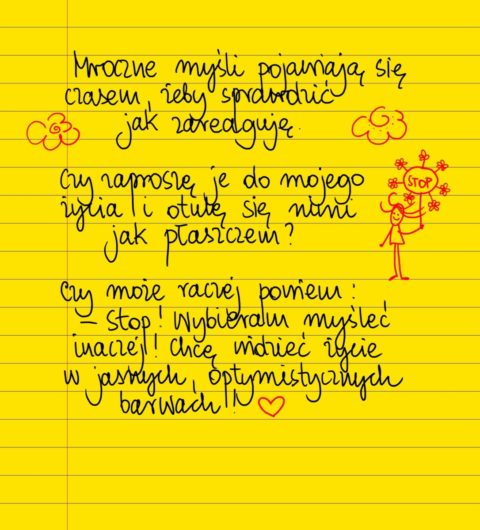 Mroczne myśli pojawiają się
czasem, żeby sprawdzić
jak zareaguję.
Czy zaproszę je do mojego
życia i otulę się nimi
jak płaszczem?
STOP
Czy może raczej powiem:
– Stop! Wybieram myśleć
inaczej! Chcę widzieć życie
w jasnych, optymistycznych
barwach!